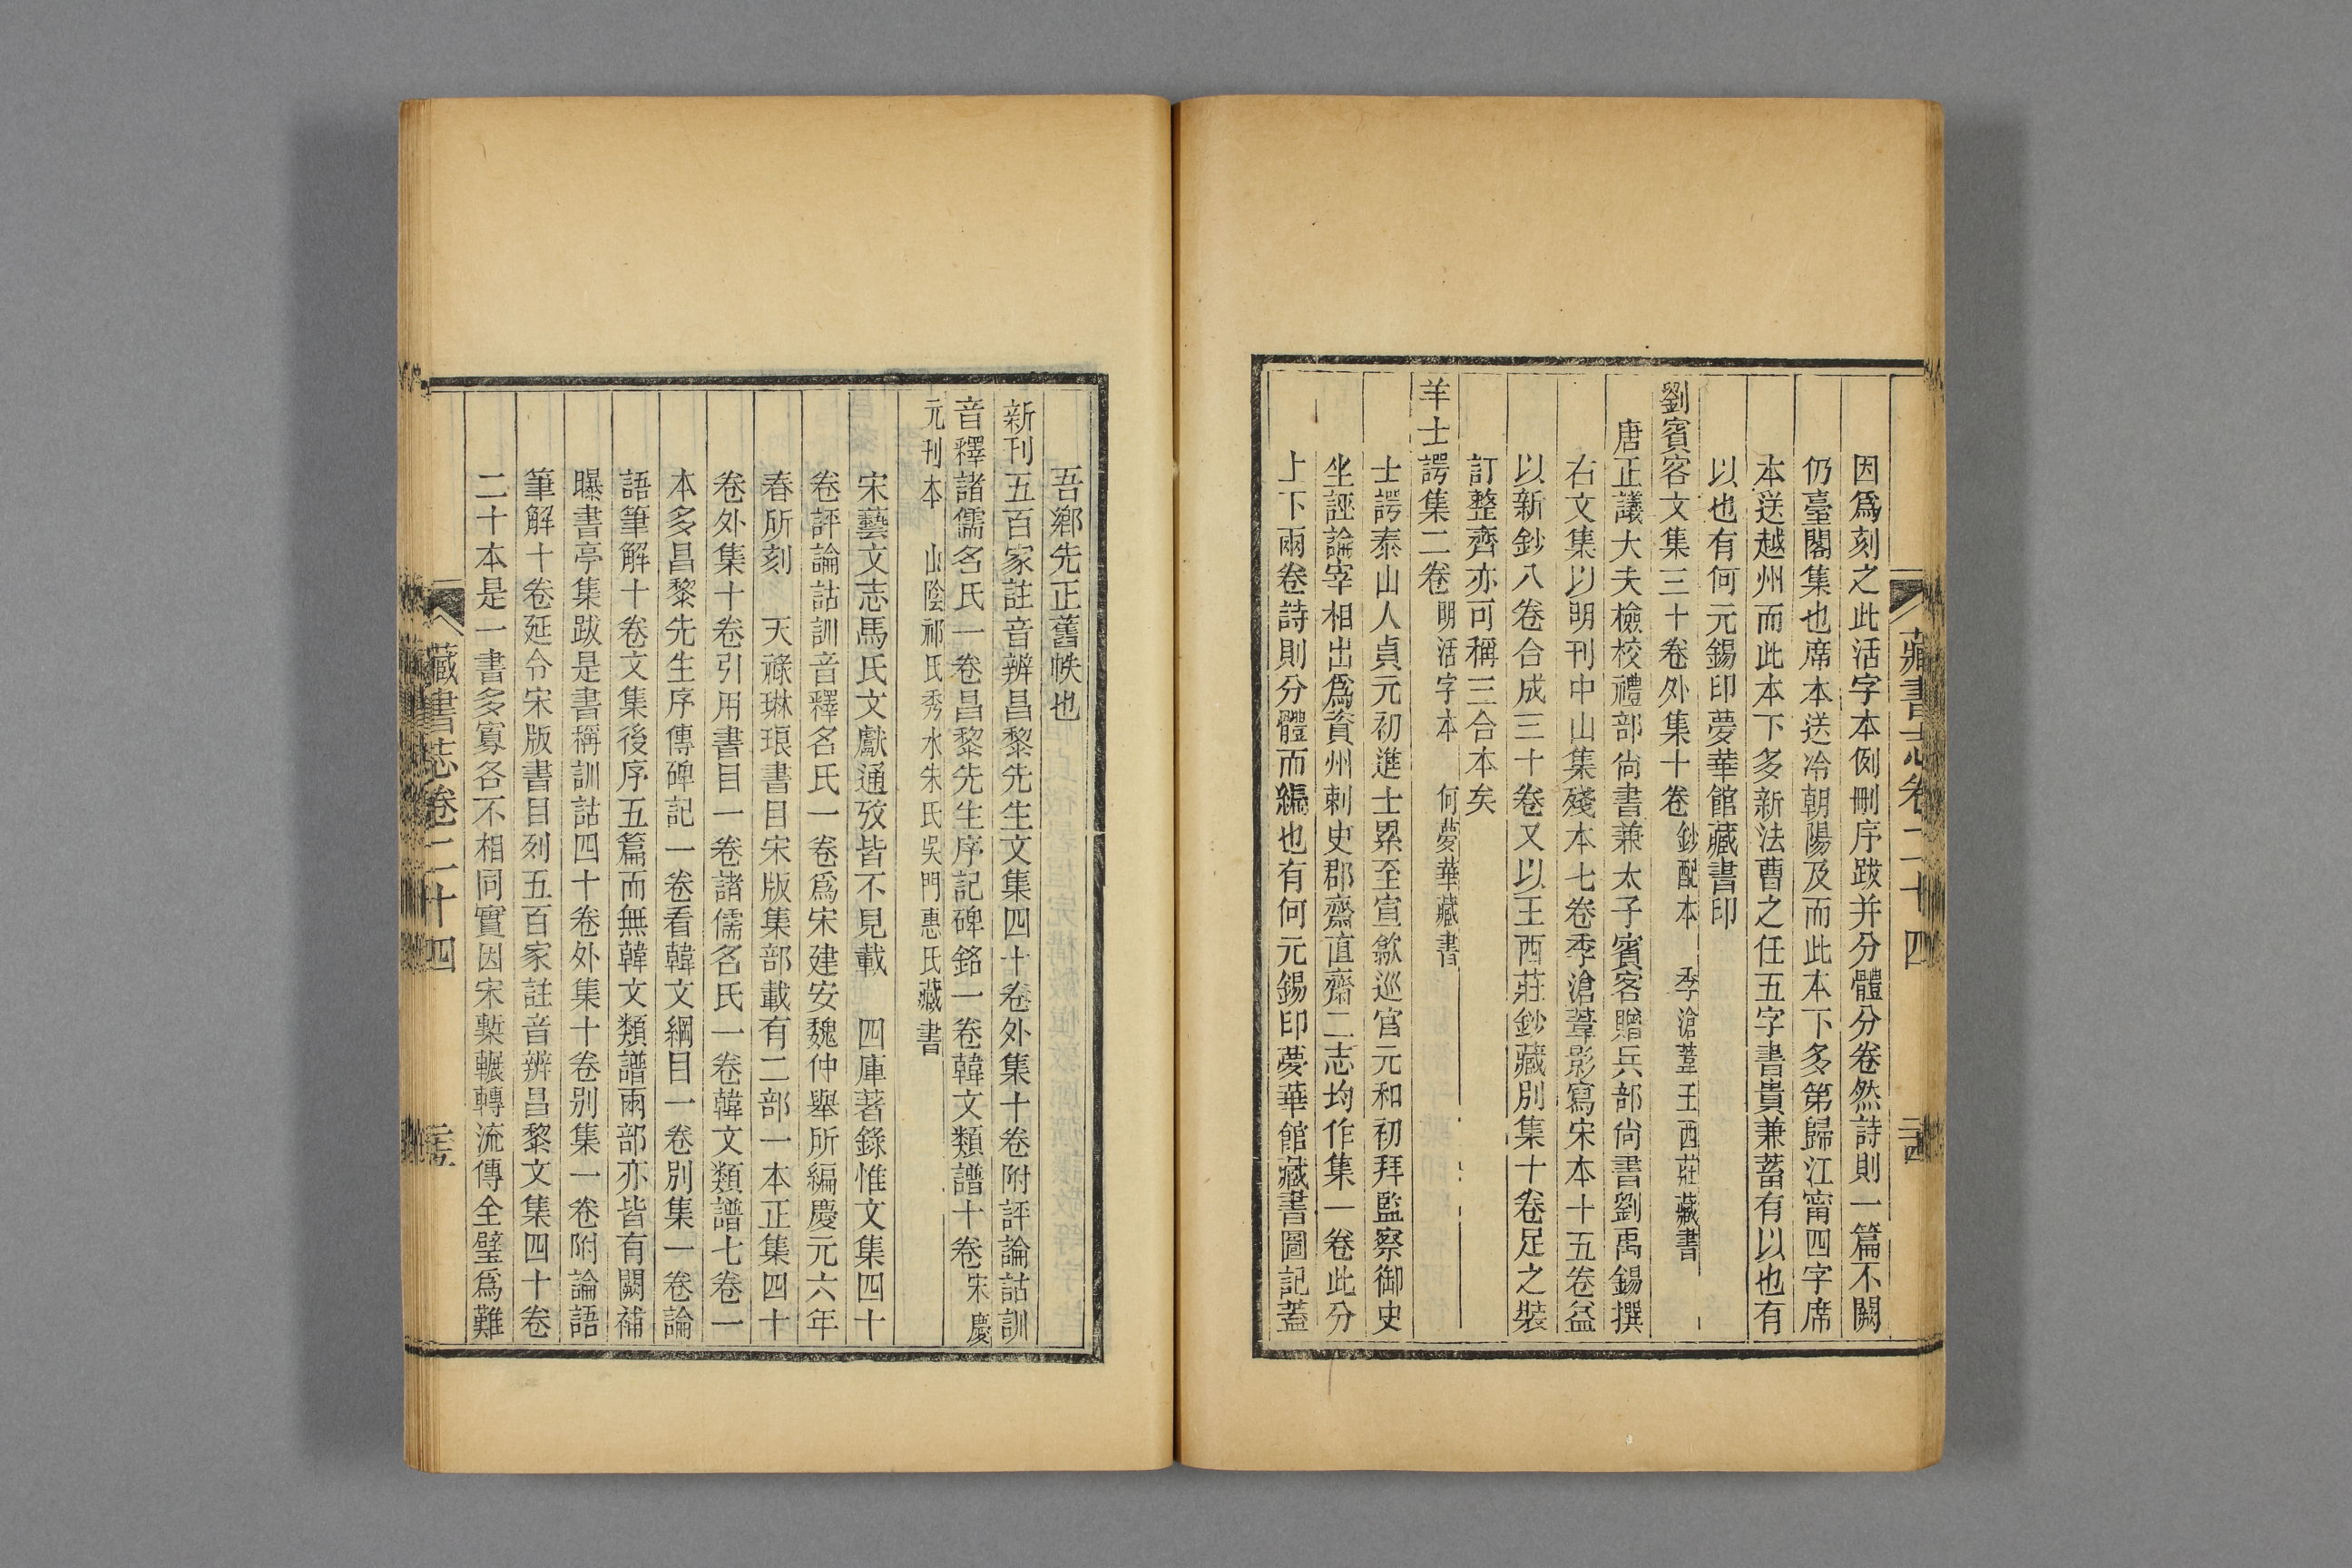 藏書志卷二十四
因爲刻之此活字本例刪序跋并分體分卷然詩則一篇不闕
仍臺閣集也席本送冷朝陽及而此本下多第歸江甯四字席
本送越州而此本下多新法曹之任五字書貴兼蓄有以也有
以也有何元錫印夢華館藏書印
劉賓客文集三十卷外集十卷 鈔配本 季滄葦王西莊藏書
唐正議大夫檢校禮部尙書兼太子賓客贈兵部尙書劉禹錫撰
右文集以明刊中山集殘本七卷季滄葦影寫宋本十五卷益
以新鈔八卷合成三十卷又以王西莊鈔藏別集十卷足之裝
訂整齊亦可稱三合本矣
羊士諤集二卷 明活字本 何夢華藏書
士諤泰山人貞元初進士累至宣歙巡官元和初拜監察御史
坐誣論宰相出爲資州刺史郡齋直齋二志均作集一卷此分
上下兩卷詩則分體而編也有何元錫印夢華館藏書圖記蓋
吾鄉先正舊帙也
新刊五百家註音辨昌黎先生文集四十卷外集十卷附評論詁訓
音釋諸儒名氏一卷昌黎先生序記碑銘一卷韓文類譜十卷 宋慶
元刊本 山陰祁氏秀水朱氏吳門惠氏藏書
宋藝文志馬氏文獻通攷皆不見載 四庫著錄惟文集四十
卷評論詁訓音釋名氏一卷爲宋建安魏仲舉所編慶元六年
春所刻 天祿琳琅書目宋版集部載有二部一本正集四十
卷外集十卷引用書目一卷諸儒名氏一卷韓文類譜七卷一
本多昌黎先生序傳碑記一卷看韓文綱目一卷別集一卷論
語筆解十卷文集後序五篇而無韓文類譜兩部亦皆有闕補
曝書亭集跋是書稱訓詁四十卷外集十卷别集一卷附論語
筆解十卷延令宋版書目列五百家註音辨昌黎文集四十卷
二十本是一書多寡各不相同實因宋槧輾轉流傳全璧爲難
藏書志卷二十四